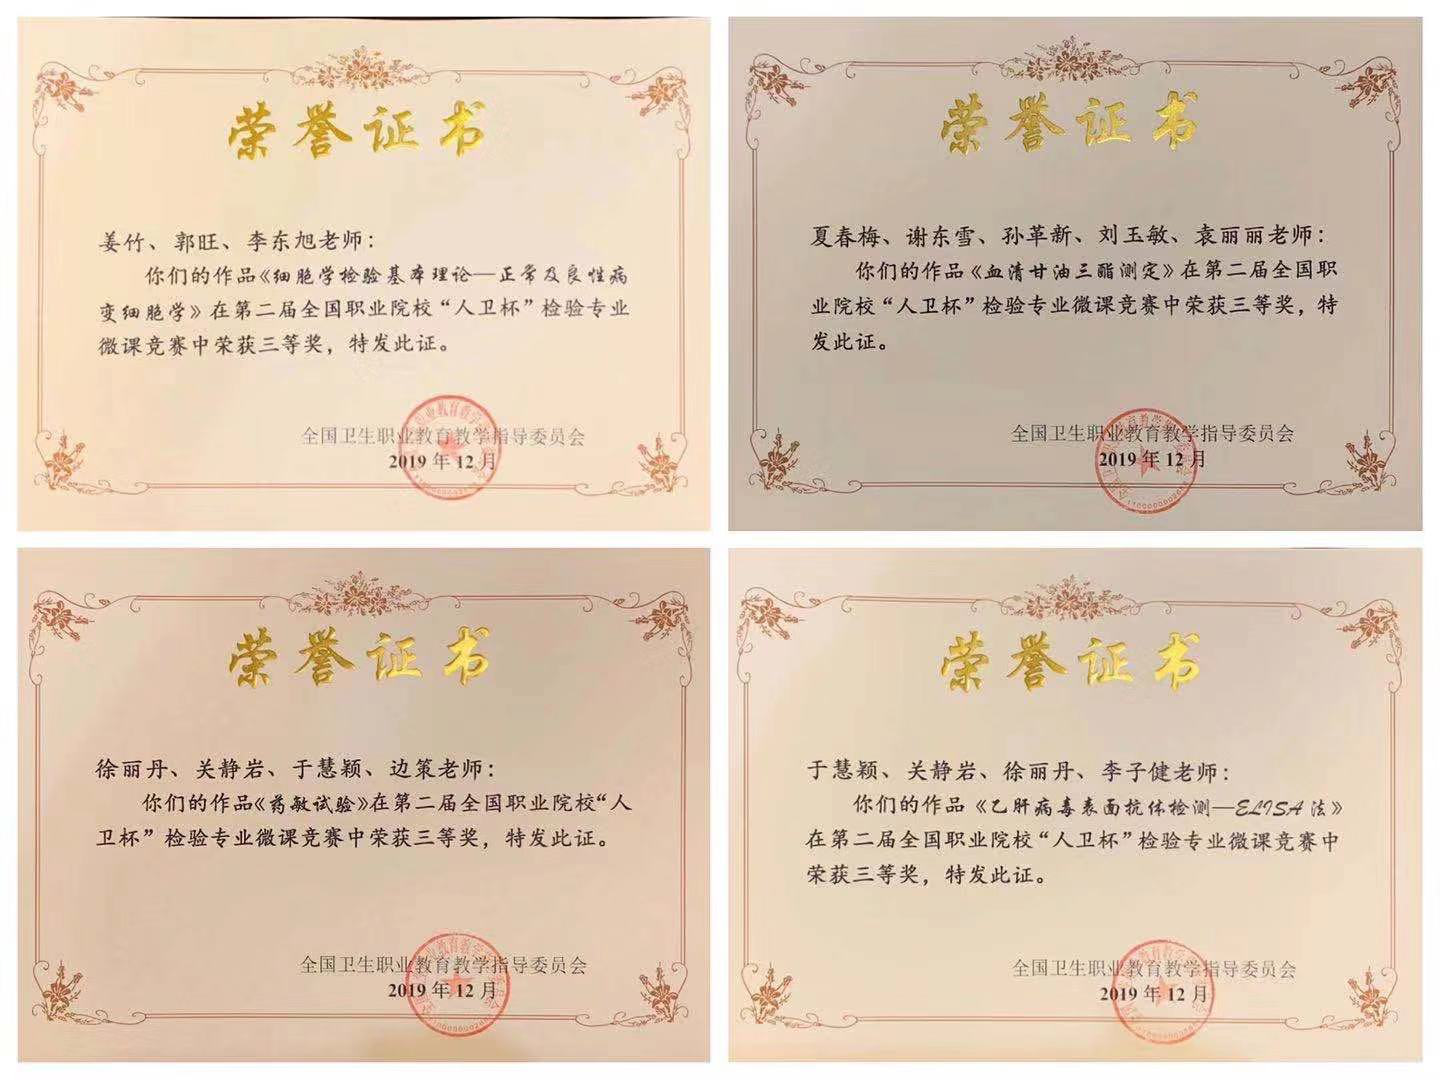 荣誉证书
姜竹、郭旺、李东旭老师：
你们的作品《细胞学检验基本理论—正常及良性病
变细胞学》在第二届全国职业院校“人卫杯”检验专业
微课竞赛中荣获三等奖，特发此证。
全国卫生职业教育教学指导委员会
2019 年 12 月
荣誉证书
夏春梅、谢东雪、孙革新、刘玉敏、袁丽丽老师：
你们的作品《血清甘油三酯测定》在第二届全国职
业院校“人卫杯”检验专业微课竞赛中荣获三等奖，特
发此证。
全国卫生职业教育教学指导委员会
2019 年 12 月
荣誉证书
徐丽丹、关静岩、于慧颖、边策老师：
你们的作品《药敏试验》在第二届全国职业院校“人
卫杯”检验专业微课竞赛中荣获三等奖，特发此证。
全国卫生职业教育教学指导委员会
2019 年 12 月
荣誉证书
于慧颖、关静岩、徐丽丹、李子健老师：
你们的作品《乙肝病毒表面抗体检测—ELISA 法》
在第二届全国职业院校“人卫杯”检验专业微课竞赛中
荣获三等奖，特发此证。
全国卫生职业教育教学指导委员会
2019 年 12 月